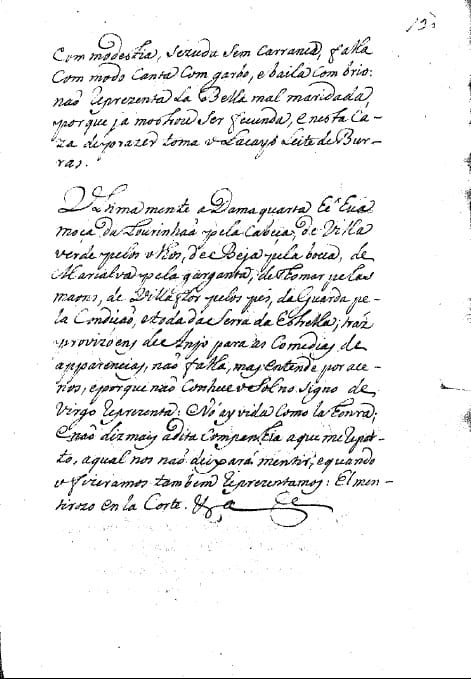 135
Com modestia, sezuda sem carranca, falla
Com modo Canta Com garbo, e baila Com brio:
naõ Reprezenta La Bella mal maridada,
porque ja mostrou ser fecunda, e nesta Ca-
za de prazer toma o Lacayo Leite de Bur-
ras.
Ultimamente a Dama quarta he a Eua
moça da Lourinhaã pela Cabeça, de Villa
verde pelos olhos, de Beja pela boca, de
Marialva pela garganta, de Thomar pelas
maons, de Villa flor pelos pés, da Guarda pe-
la Condiçaõ, e toda da Serra da Estrella; traz
provizoens de Anjo para as Comedias de
apparencias, naõ falla, mas entende por ace-
nos, e porque naõ Conheceo Sol no Signo de
Virgo Reprezenta: No ay vida como la honra;
e naõ diz mais a dita Companhia a que me repor-
to, a qual nos naõ deixará mentir; e quando
o fizeramos tambem Reprezentamos: El men-
tirozo en la Corte. &a